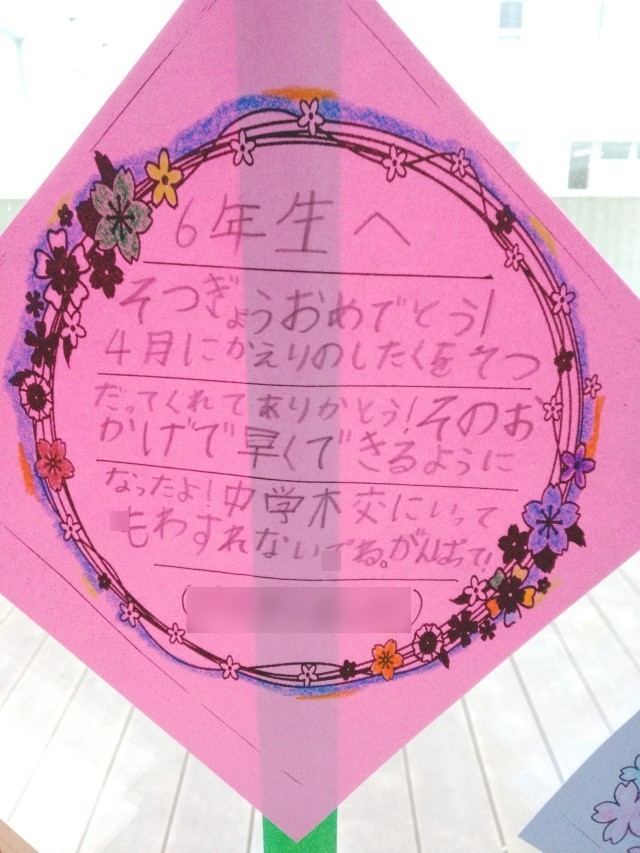 6年生へ
そつぎょうおめでとう!
4月にかえりのしたくをそつ
だってくれてありがとう!そのお
かげで早くできるように
なったよ!中学校にいって
もわすれないでね。がんばって!